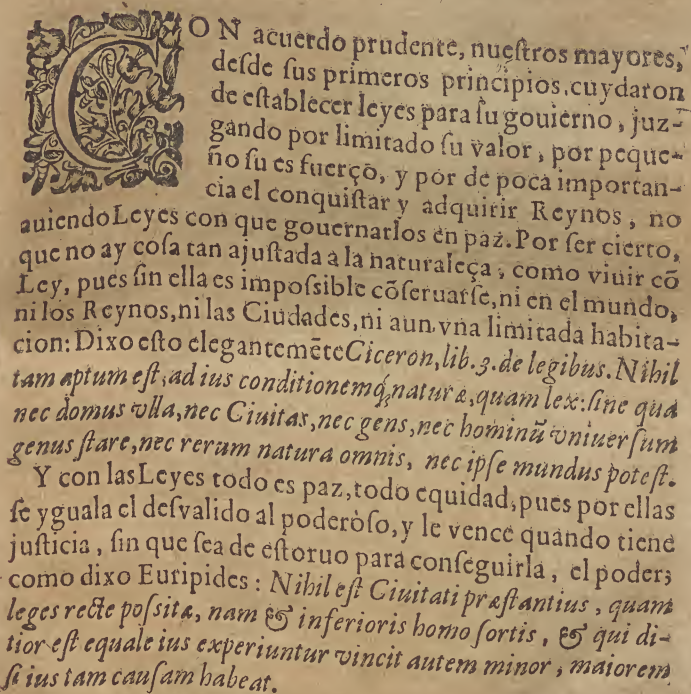 CON acuerdo prudente, nueſtros mayores,
deſde ſus primeros principios, cuydaron
de eſtablecer leyes para ſu gouierno, juz-
gando por limitado ſu valor, por peque-
ño ſu es fuerço, y por de poca importan-
cia el conquiſtar y adquirir Reynos, no
auiendo Leyes con que gouernarlos en paz. Por ſer cierto,
que no ay coſa tan ajuſtada a la naturaleça, como viuir cō
Ley, pues ſin ella es impoſsible cōſeruarſe, ni en el mundo,
ni los Reynos, ni las Ciudades, ni aun vna limitada habita-
cion: Dixo eſto elegantemēte Ciceron, lib. 3. de legibus. Nihil
tam aptum eſt, ad ius conditionemq́; naturæ, quam lex: ſine qua
nec domus vlla, nec Ciuitas, nec gens, nec hominū vniuerſum
genus ſtare, nec rerum natura omnis, nec ipſe mundus poteſt.
Y con las Leyes todo es paz, todo equidad, pues por ellas
ſe yguala el deſvalido al poderòſo, y le vence quando tiene
juſticia, ſin que ſea de eſtoruo para conſeguirla, el poder;
como dixo Euripides: Nihil eſt Ciuitati præſtantius, quam
leges recte poſsitæ, nam & inferioris homo ſortis, & qui di-
tior eſt equale ius experiuntur vincit autem minor, maiorem
ſi ius tam cauſam habeat.